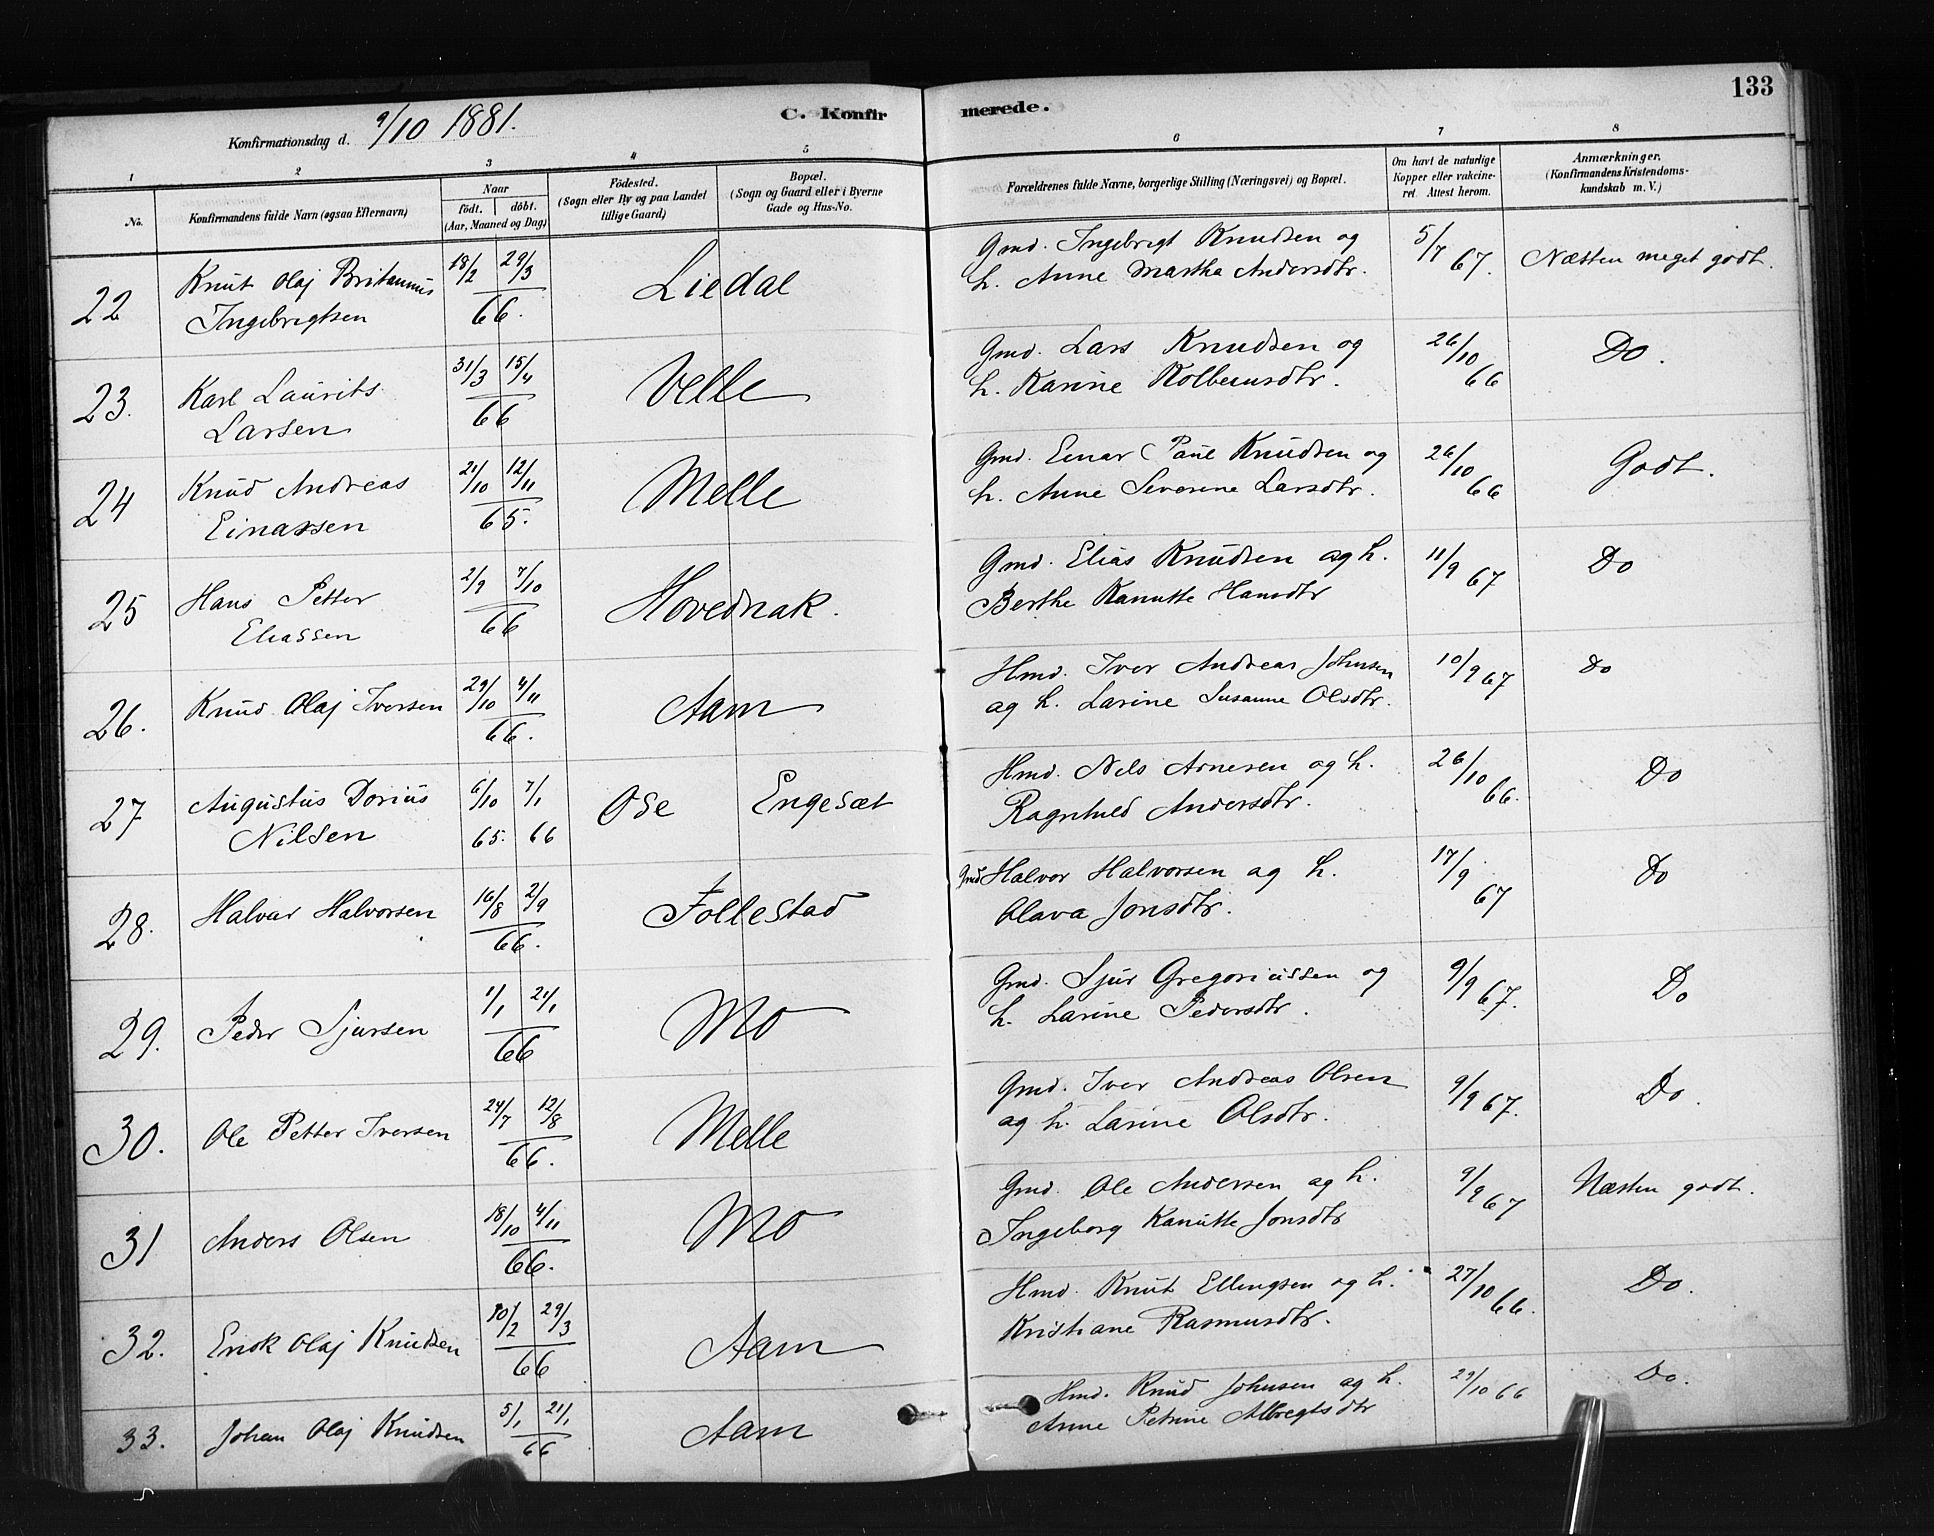 133
C. Konfirmerede.
Konfirmationsdag d. 9/10 1881.
1 2 3 4 5 6 7 8
No.
Konfirmandens fulde Navn (ogsaa Efternavn)
Naar
født. døbt.
(Aar, Maaned og Dag)
Fødested.
(Sogn eller By og paa Landet
tillige Gaard)
Bopæl.
(Sogn og Gaard eller i Byerne
Gade og Hus-No.
Forældrenes fulde Navne, borgerlige Stilling (Næringsvei) og Bopæl.
Om havt de naturlige
Kopper eller vakcine-
ret. Attest herom.
Anmærkninger.
(Konfirmandens Kristendoms-
kundskab m. V.)
22 Knut Olaj Britannus 18/2 29/3 Liedal Gmd. Ingebrigt Knudsen og 5/7 67. Næsten meget godt.
Ingebrigtsen 66. h. Anne Martha Andersdtr.
23. Karl Laurits 31/3 15/4 Velle Gmd. Lars Knudsen og 26/10 66 Do.
Larsen 66 h. Karine Kolbeinsdtr.
24 Knud Andreas 21/10 12/11 Melle Gmd. Einar Paul Knudsen og 26/10 66 Godt.
Einarsen 65. h. Anne Severine Larsdtr.
25 Hans Petter 2/9 7/10 Hovednak. Gmd. Elias Knudsen og h. 11/9 67 Do
Eliassen 66 Berthe Kanutte Hansdtr
26. Knud Olaj Iversen 29/10 4/11 Aam Hmd. Iver Andreas Johnsen 10/9 67 Do
66. og h. Larine Susanne Olsdtr.
27 Augustus Dorius 6/10 7/1 Ose Engesæt Hmd. Nils Arnesen og h. 26/10 66. Do
Nilsen 65. 66 Ragnhild Andersdtr.
28. Halvar Halvorsen 16/8 2/9 Follestad Gmd Halvor Halvorsen og h. 17/9 67 Do
66. Olava Jonsdtr.
29. Peder Sjursen 1/1 21/1 Mo Gmd. Sjur Gregoriussen og 9/9 67. Do
66 h. Larine Pedersdtr.
30. Ole Petter Iversen 24/7 12/8 Melle Gmd. Iver Andreas Olsen 9/9 67. Do.
66. og h. Larine Olsdtr.
31 Anders Olsen 18/10 4/11 Mo Gmd. Ole Andersen og h. 9/9 67 Næsten godt.
66. Ingeborg Kanutte Jonsdtr
32. Erik Olaj Knudsen 10/2 29/3 Aam Hmd. Knut Ellingsen og h. 27/10 66. Do.
66 Kristiane Rasmusdtr.
33. Johan Olaj Knudsen 5/1 21/1 Aam Hmd. Knud Johnsen og h. 29/10 66 Do.
66 Anne Petrine Albregtsdtr